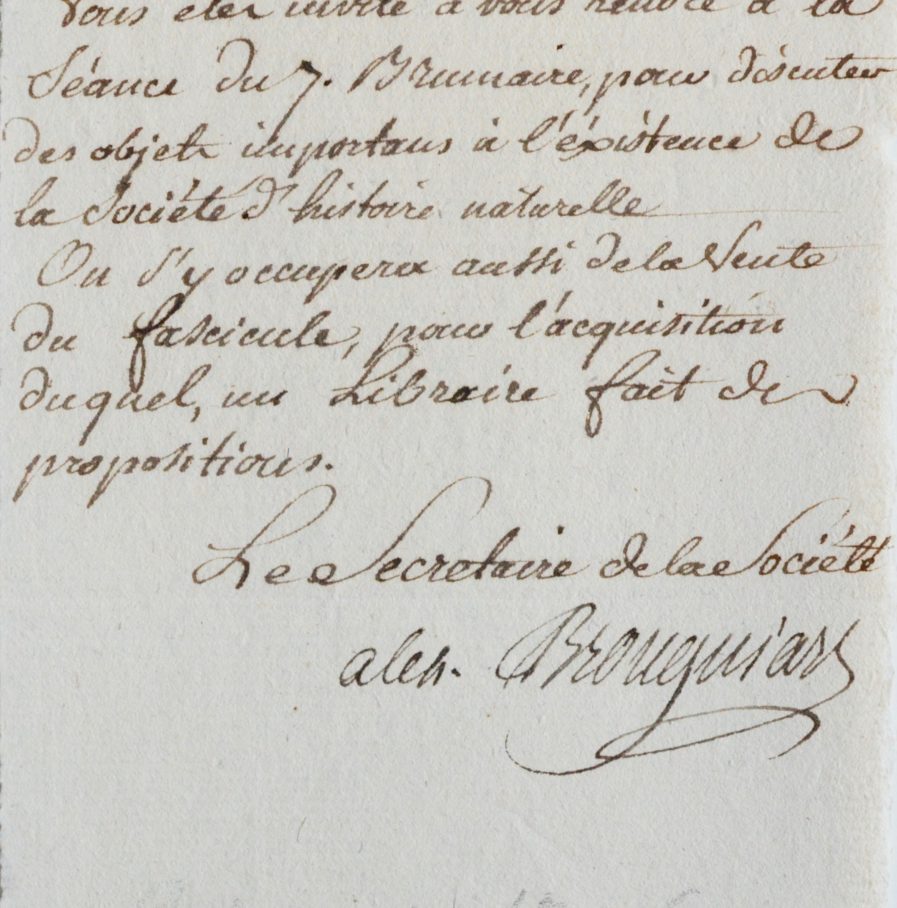 Vous etes invité à vous rendre à la
Séance du 7. Brumaire, pour discuter
des objets importans à l'éxistence de
la Société d'histoire naturelle
On s'y occupera aussi de la Vente
du fascicule, pour l'acquisition
duquel, un Libraire fait des
propositions.
Le Secretaire de la Société
alex. Brongniart